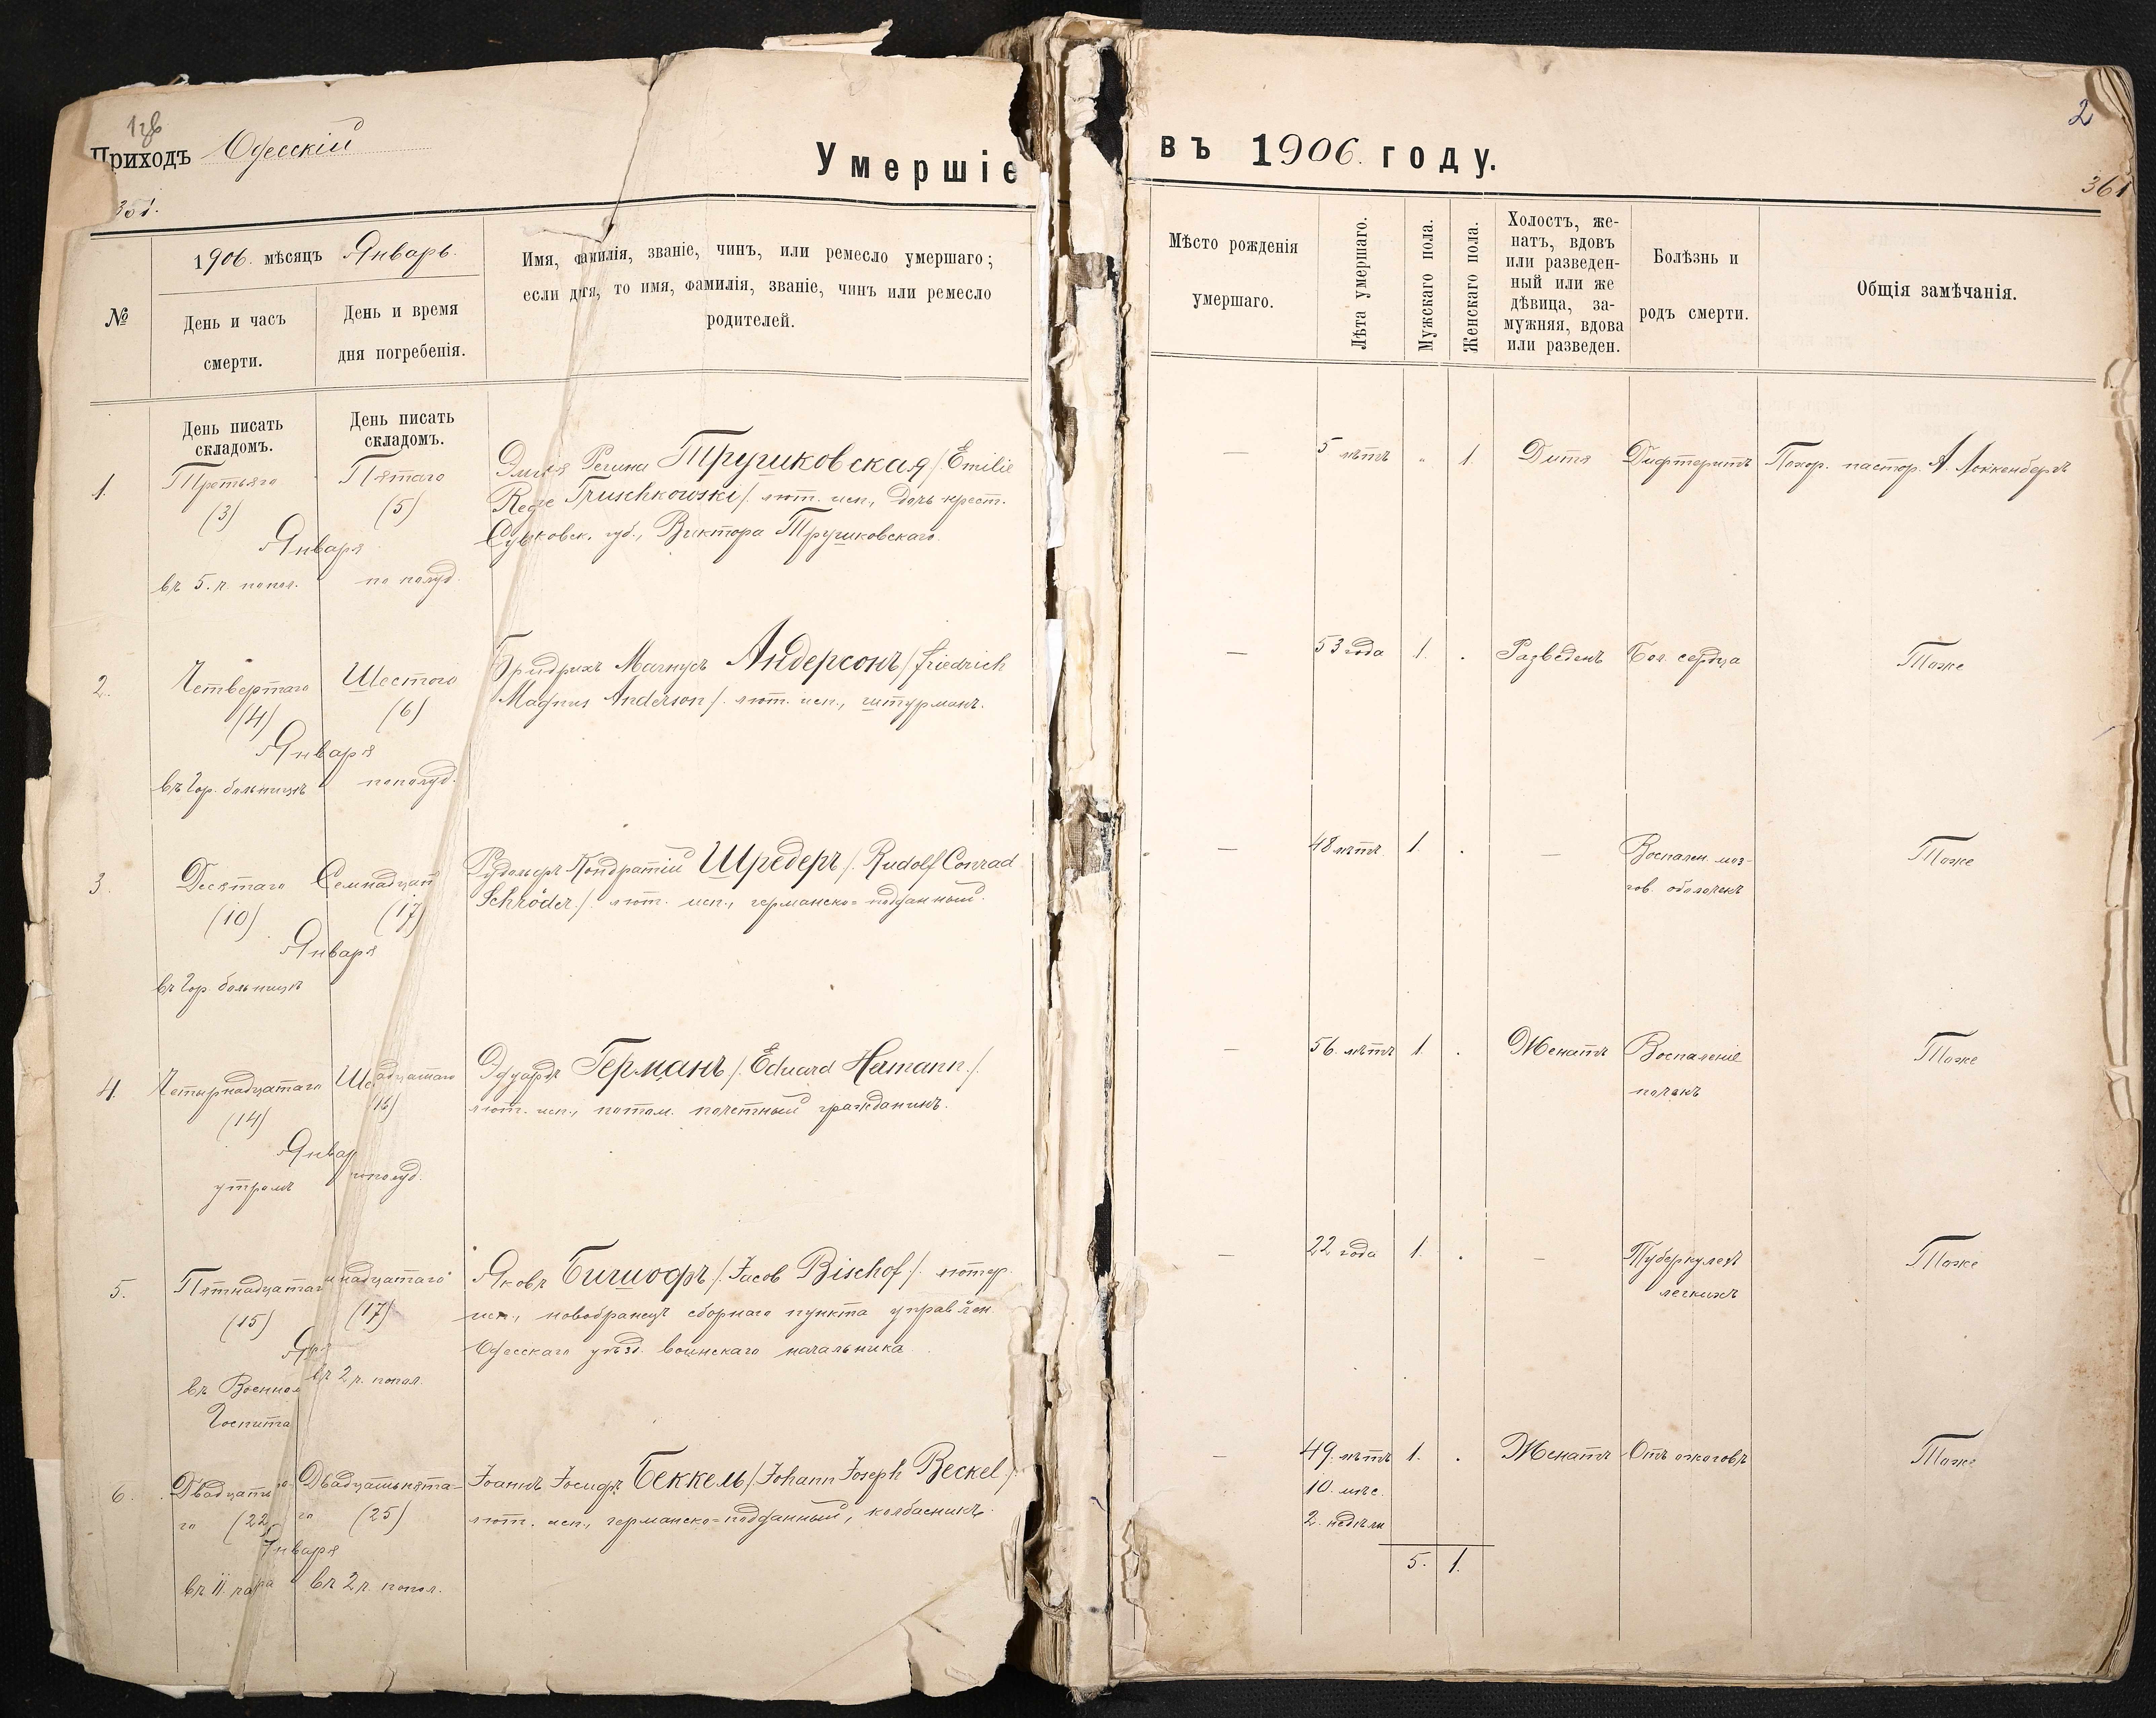 Приходъ Одесскій
Умершіе
въ 1906. году.
2
361
№
1906. мѣсяцъ Январь.
День и часъ
смерти.
День и время
дня погребенія.
Имя, фамилія, званіе, чинъ, или ремесло умершаго;
если дитя, то имя, фамилія, званіе, чинъ или ремесло
родителей.
Мѣсто рожденія
умершаго.
Лѣта умершаго.
Мужскаго пола.
Женскаго пола.
Холостъ, же-
натъ, вдовъ
или разведен-
ный или же
дѣвица, за-
мужняя, вдова
или разведен.
Болѣзнь и
родъ смерти.
Общія замѣчанія.
День писать
складомъ.
День писать
складомъ.
1.
Третьяго
(3)
Пятаго
(5)
Января
въ 5. ч. попол.
по полуд.
Эмилія Регина Трушковская /Emilie
Truschkowski/. лют. исп., дочь крест.
Сувалковск. губ., Виктора Трушковскаго.
—
5 лѣтъ
"
1.
Дитя
Дифтеритъ
Похор. пастор. А. Локкенбергъ
2.
Четвертаго
(4)
Шестого
(6)
Января
въ Гор. больницѣ
пополуд.
Фридрихъ Магнусъ Андерсонъ /Friedrich
Magnus Anderson/. лют. исп., штурманъ.
—
53 года
1.
.
Разведенъ
Бол. сердца
Тоже
3.
Десятаго
(10)
Семнадцат
(17)
Января
въ Гор. больницѣ
Рудольфъ Кондратій Шредеръ /. Rudolf Conrad
Schröder./. лют. исп., германско=подданный.
—
48 лѣтъ
1.
.
—
Воспален. моз-
гов. оболочекъ
Тоже
4.
Четырнадцатаго
(14)
Ше дцатаго
16)
Январ
утромъ
пополуд.
Эдуардъ Германъ /. Eduard Hermann./.
лют. исп., потом. почетный гражданинъ.
—
56. лѣтъ
1.
.
Женатъ
Воспаленіе
почекъ
Тоже
5.
Пятнадцатаг
(15)
надцатаго
(17)
въ Военном
Госпита
въ 2 ч. попол.
Яковъ Бишофъ /. Jacob Bischof/. лютер.
исп., новобранецъ сборнаго пункта управлен
Одесскаго уѣзд. воинскаго начальника.
—
22 года
1.
.
—
Туберкулезъ
легкихъ
Тоже
6.
Двадцать
го (22
Двадцатьпята-
го (25)
Января
въ 11. ч
въ 2 ч. попол.
Іоаннъ Іосифъ Беккель /. Johann Joseph Beckel./.
лют. исп., германско=подданный, колбасникъ.
—
49. лѣтъ
10. мѣс.
2. недѣли
1.
.
Женатъ
Отъ ожоговъ
Тоже
5. 1.